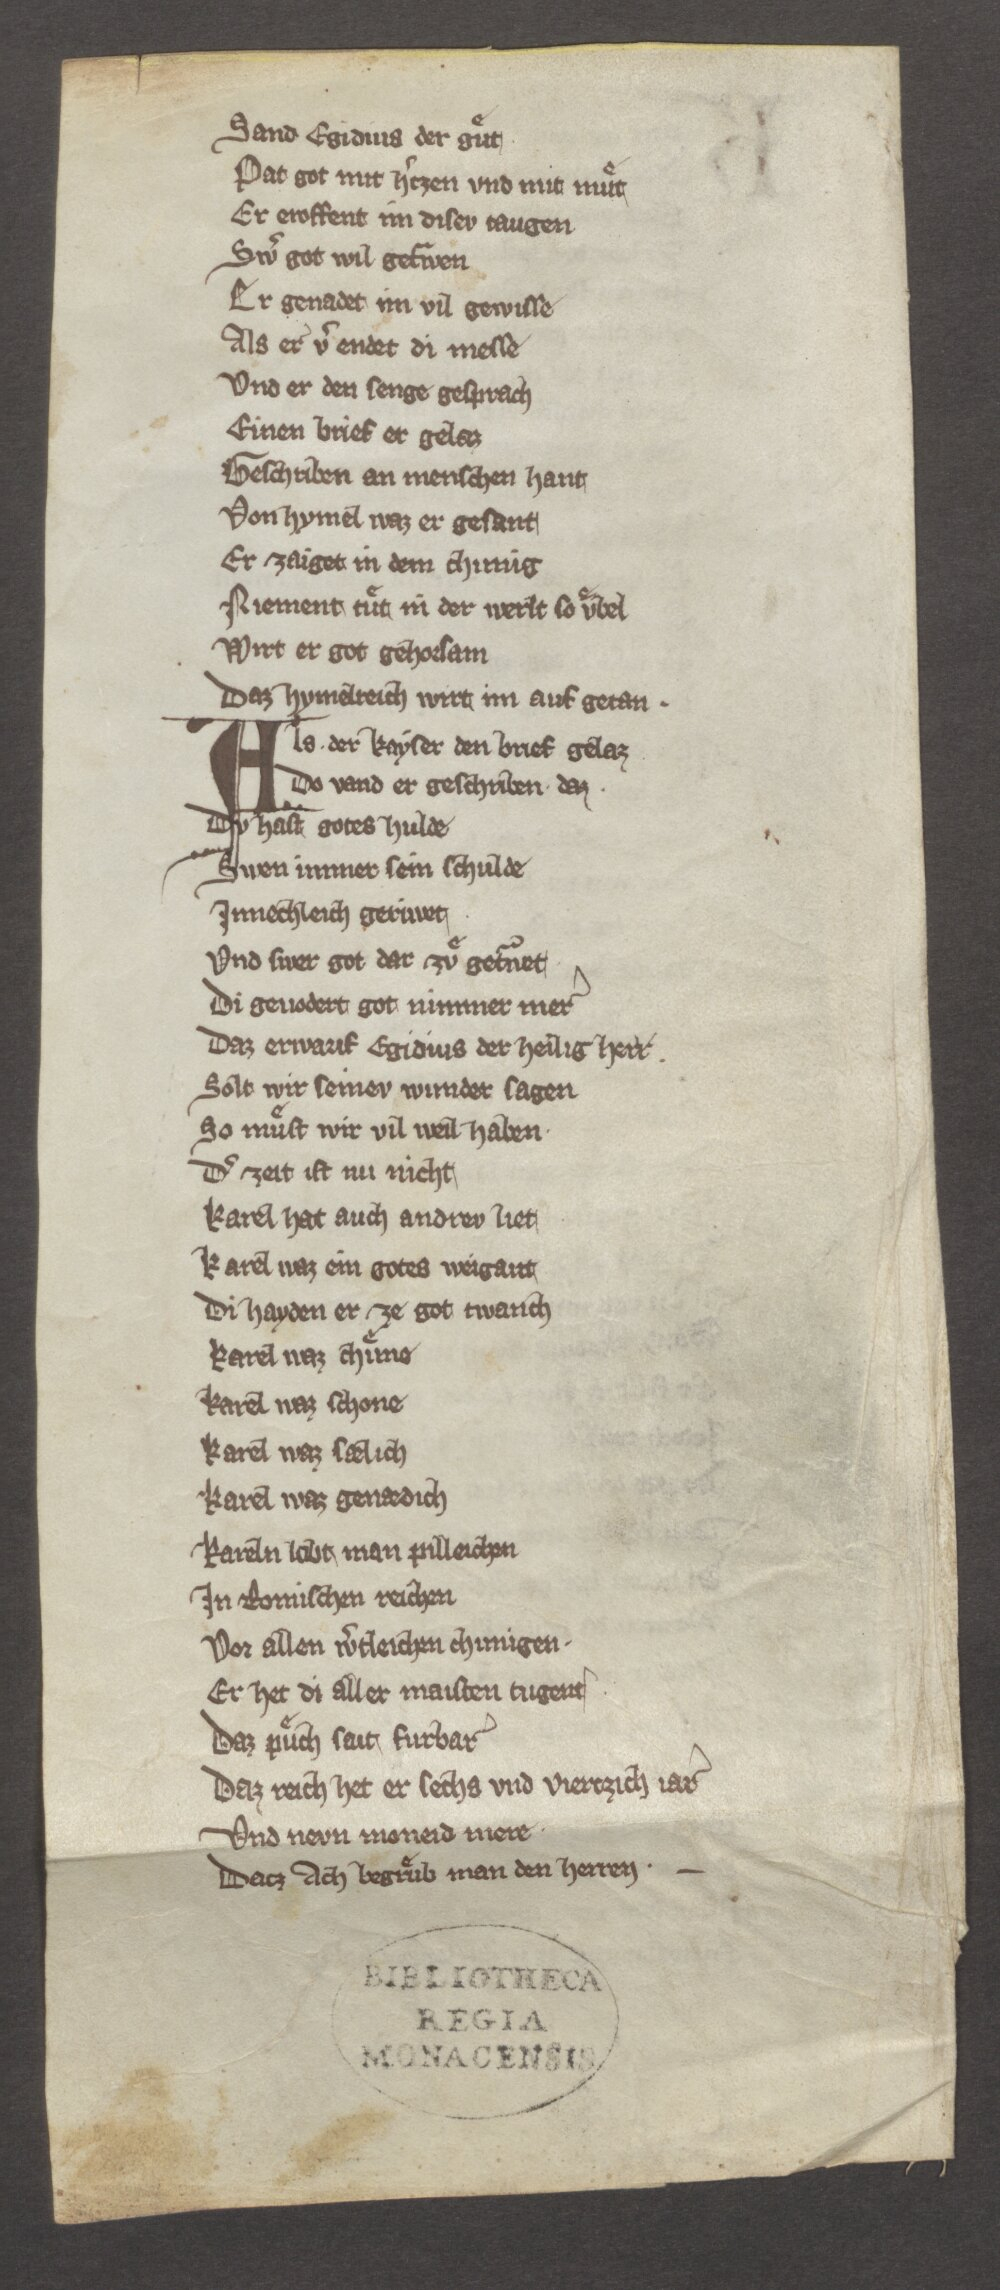 Sand Egidius der guͤt
Pat got mit h̓tzen vnd mit muͤt
Er eroffent im disev taugen
Sw̓ got wil getrwen
Er genadet im vil gewisse
Als er v̓ endet di messe
Vnd er den senge gesprach
Einen brief er gelaz
Geschriben an menschen haut
Von hymel waz er gesant
Er zaiget in dem chunig
Niement tuͤt in der werlt so vͤbel
Wirt er got gehorsam
Daz hymelreich wirt im auf getan ·
Als · der kayser den brief gelaz
Do vand er geschriben · daz ·
Dv hast gotes hulde
Swen immer sein schulde
Innechleich geriwet
Vnd swer got dar zvͤ getrwet
Di gevodert got nimmer mer
Daz erwarf Egidius der heilig herr ·
Solt wir seinev wunder sagen
So muͤst wir vil weil haben ·
D̓ zeit ist nu nicht
Karel hat auch andrev liet
Karel waz ein gotes weigant
Di hayden er ze got twanch
Karel waz chuͤne
Karel waz schone
Karel waz sælich
Karel waz genædich
Kareln lobt man pilleichen
In Romischen reichen
Vor allen w̓tleichen chunigen ·
Er het di aller maisten tugent
Daz puͤch sait furbar
Daz reich het er sechs vnd viertzich iar
Vnd nevn moneid mere ·
Datz Ach begruͤb man den herren · —
BIBLIOTHECA
REGIA
MONACENSIS